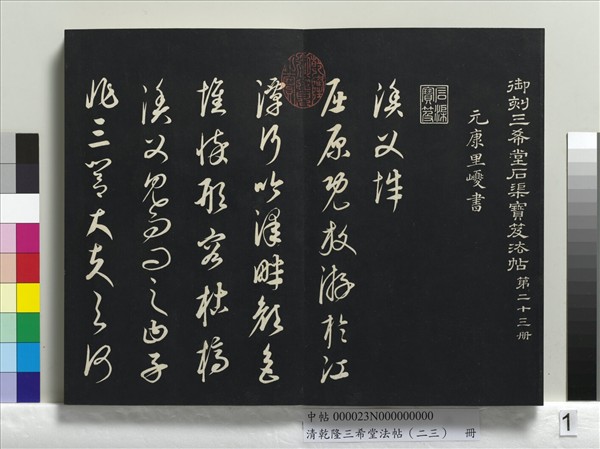 御刻三希堂石渠寶笈法帖 第二十三册
元康里巎書
石渠寶笈
漁父辭
屈原既放游於江
潭行吟澤畔顏色
憔悴形容枯槁
漁父見而問之曰子
非三閭大夫與何
中帖 000023N000000000
清乾隆三希堂法帖（二三） 冊
1